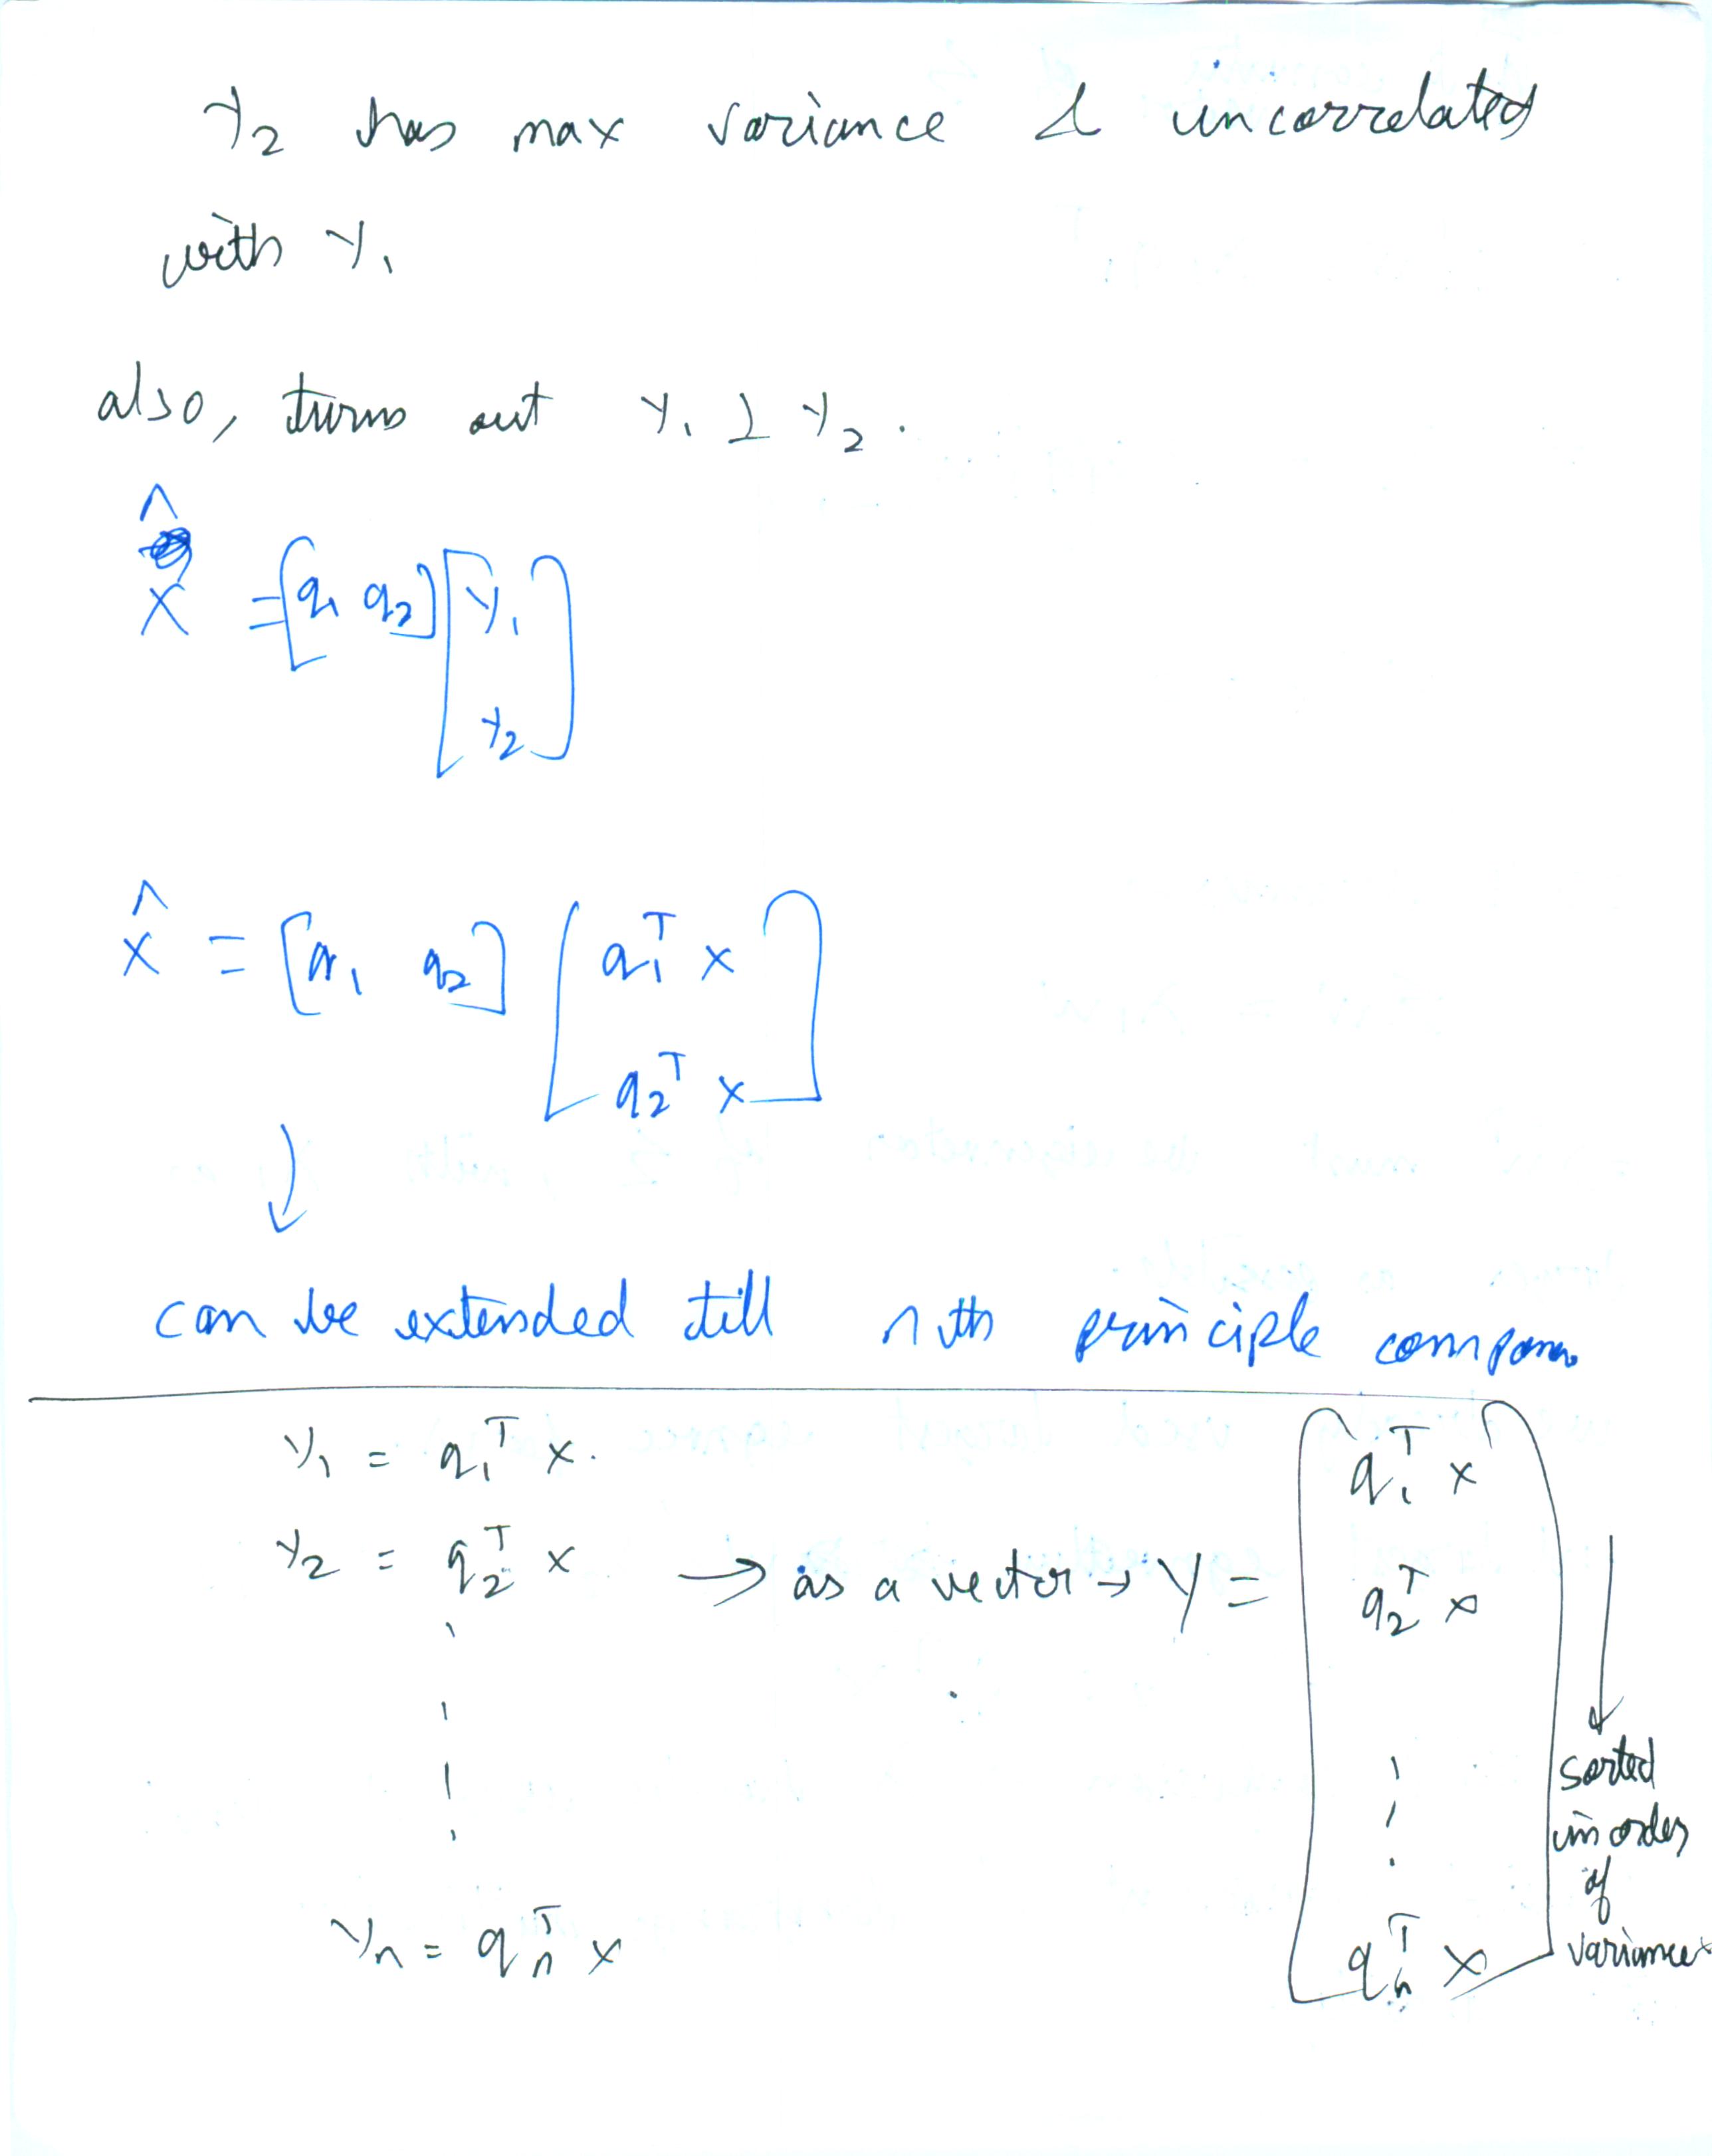 y₂ has max variance & uncorrelated
with y₁
also, turns out y₁ ⊥ y₂.
x̂ = [q₁ q₂] [y₁
y₂]
x̂ = [q₁ q₂] [q₁ᵀ x
q₂ᵀ x]
can be extended till nth principle
y₁ = q₁ᵀ x.
y₂ = q₂ᵀ x → as a vector → Y = [q₁ᵀ x
q₂ᵀ x
⋮
yₙ = qₙᵀ x
qₙᵀ x]
sorted
in order
of
variance